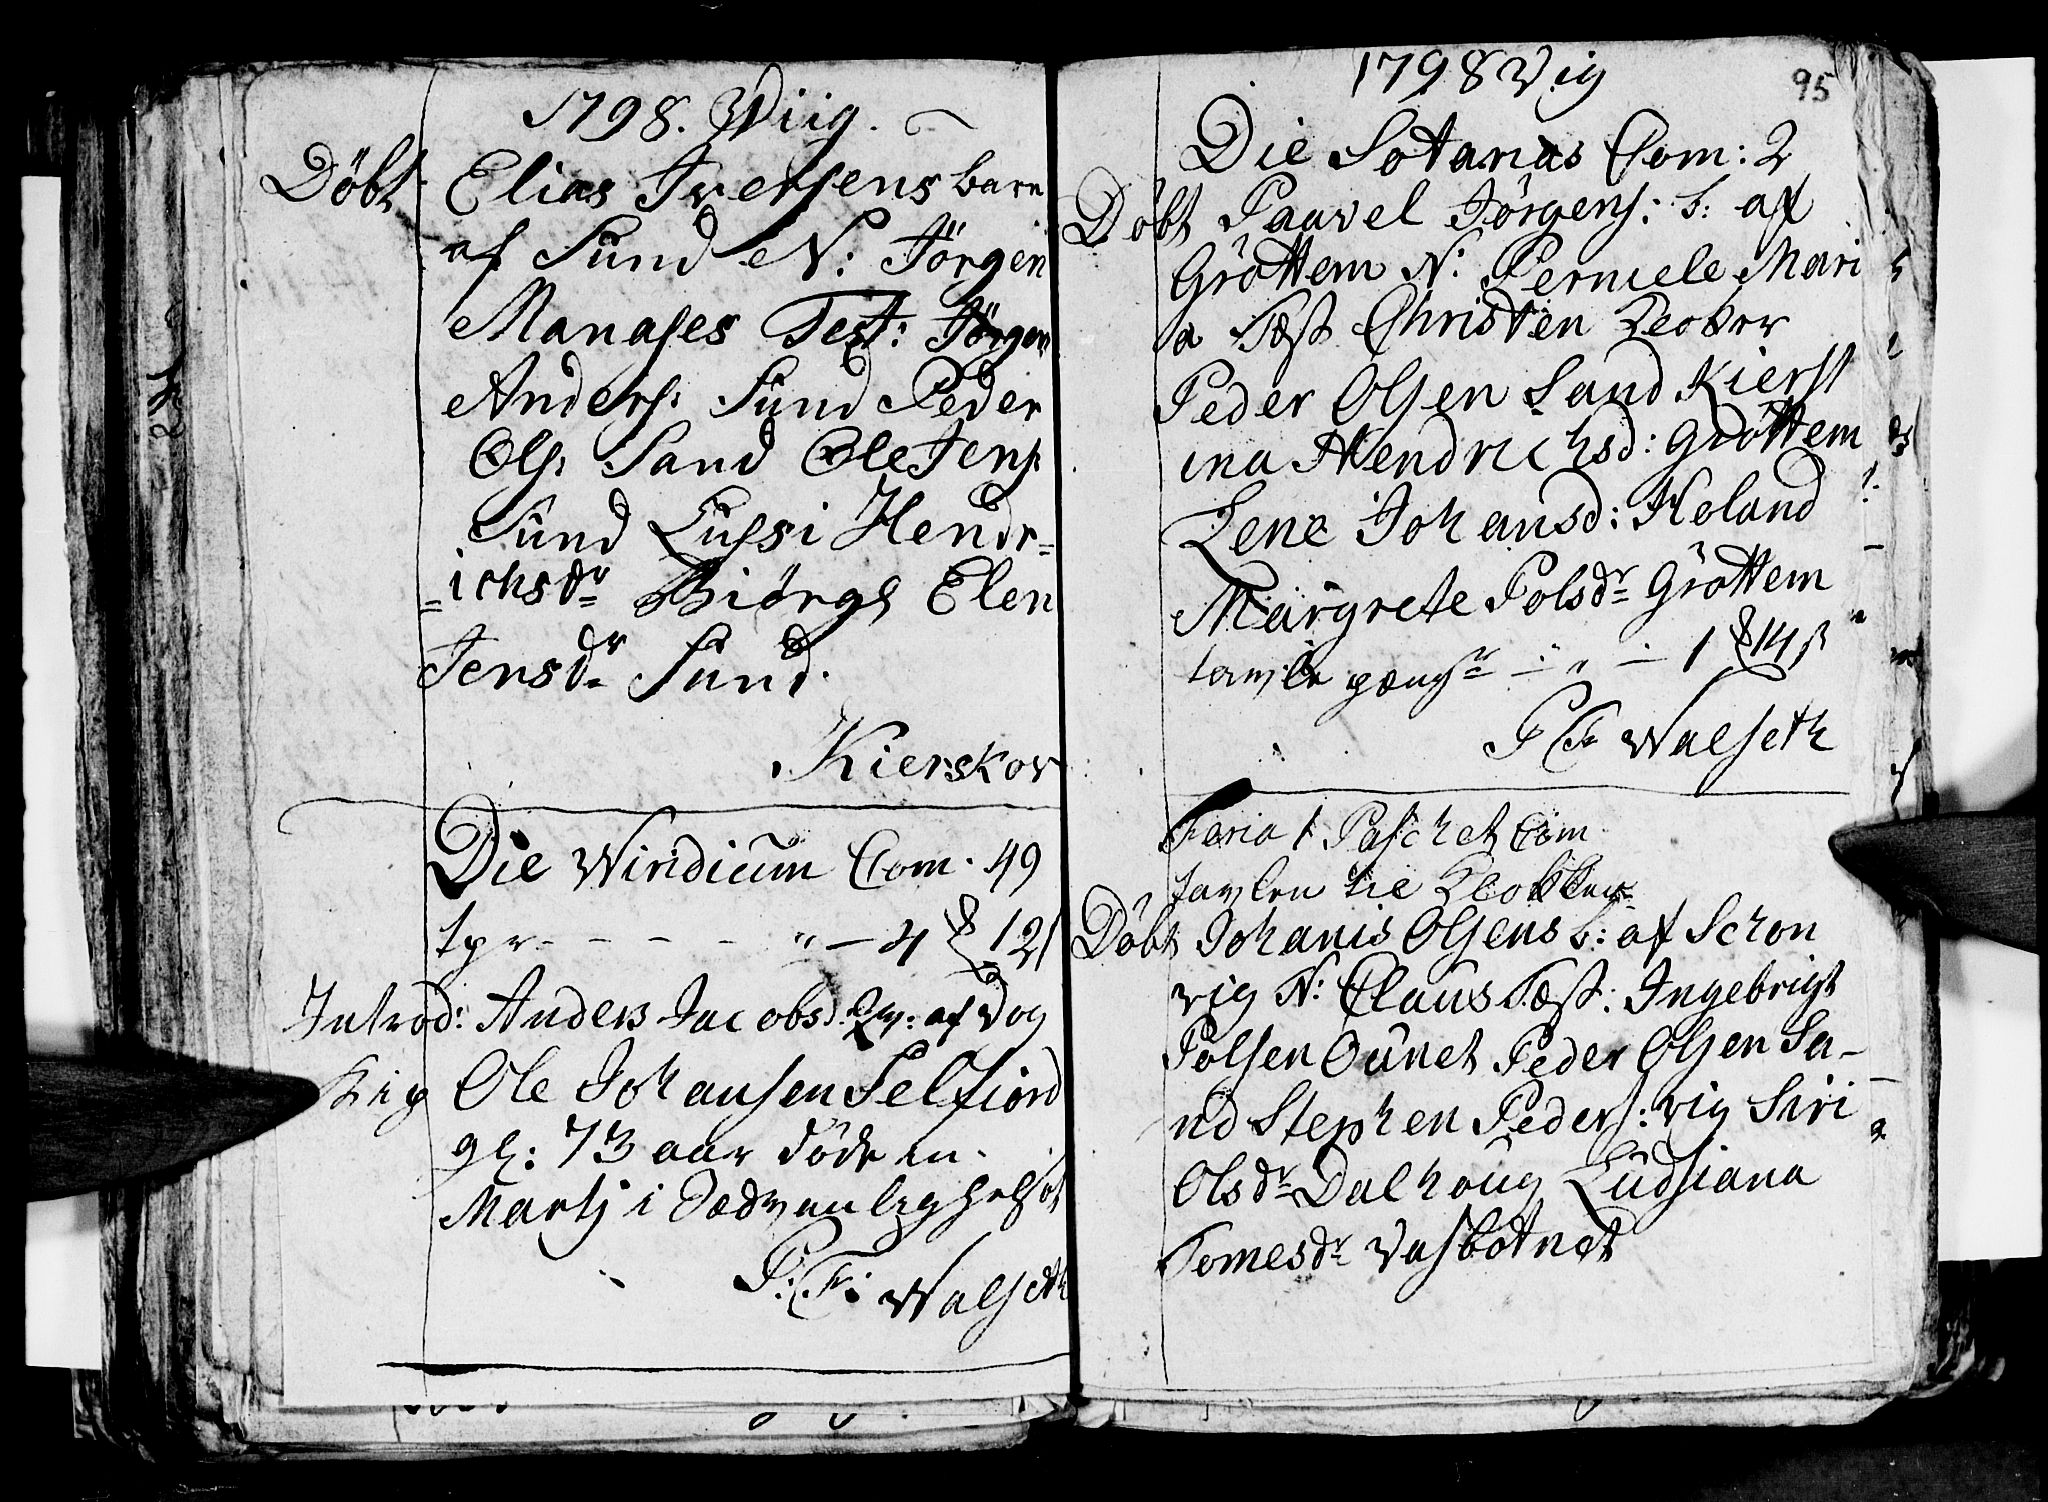 1798. Wiig.
Döbt Elias Iversens barn
af Sund N: Jörgen
Manases Test: Jörgen
Anders: Sund Peder
Ols: Sand Ole Jens:
Sund Lussi Hendr=
=ichsdr Biörge Elen
Jensdr Sund.
Kierskov
Die Wiridium Com. 49
tpr - - - - - " - 4 12
Introd: Anders Jacobs: Qv: af Vog
Lig Ole Johansen Selfiord
gl: 73 aar döde in
Martj i
P: F: Walseth
1798 Vig
95
Die Sotanas Com: 2
Döbt Paavel Jörgens: b: af
Gröttem N: Perniele Mari
a Tæst Christen Klokker
Peder Olsen Sand Kierst
ina Hendrichsd: Gröttem
Lene Johansd: Holand
Margrete Polsdr Gröttem
tavle pengr - " - 1 14 s
P F Walseth
Feria 1 Paschet Com
tavlen tie Klokker
Döbt Johanis Olsens b: af Schon
vig N: Claus Tæst: Ingebrigt
Polsen Ounet Peder Olsen Sa-
nd Stephen Peders: vig Siri
Olsdr Dalhoug Ludsiana
Tomesdr Vasbotnet